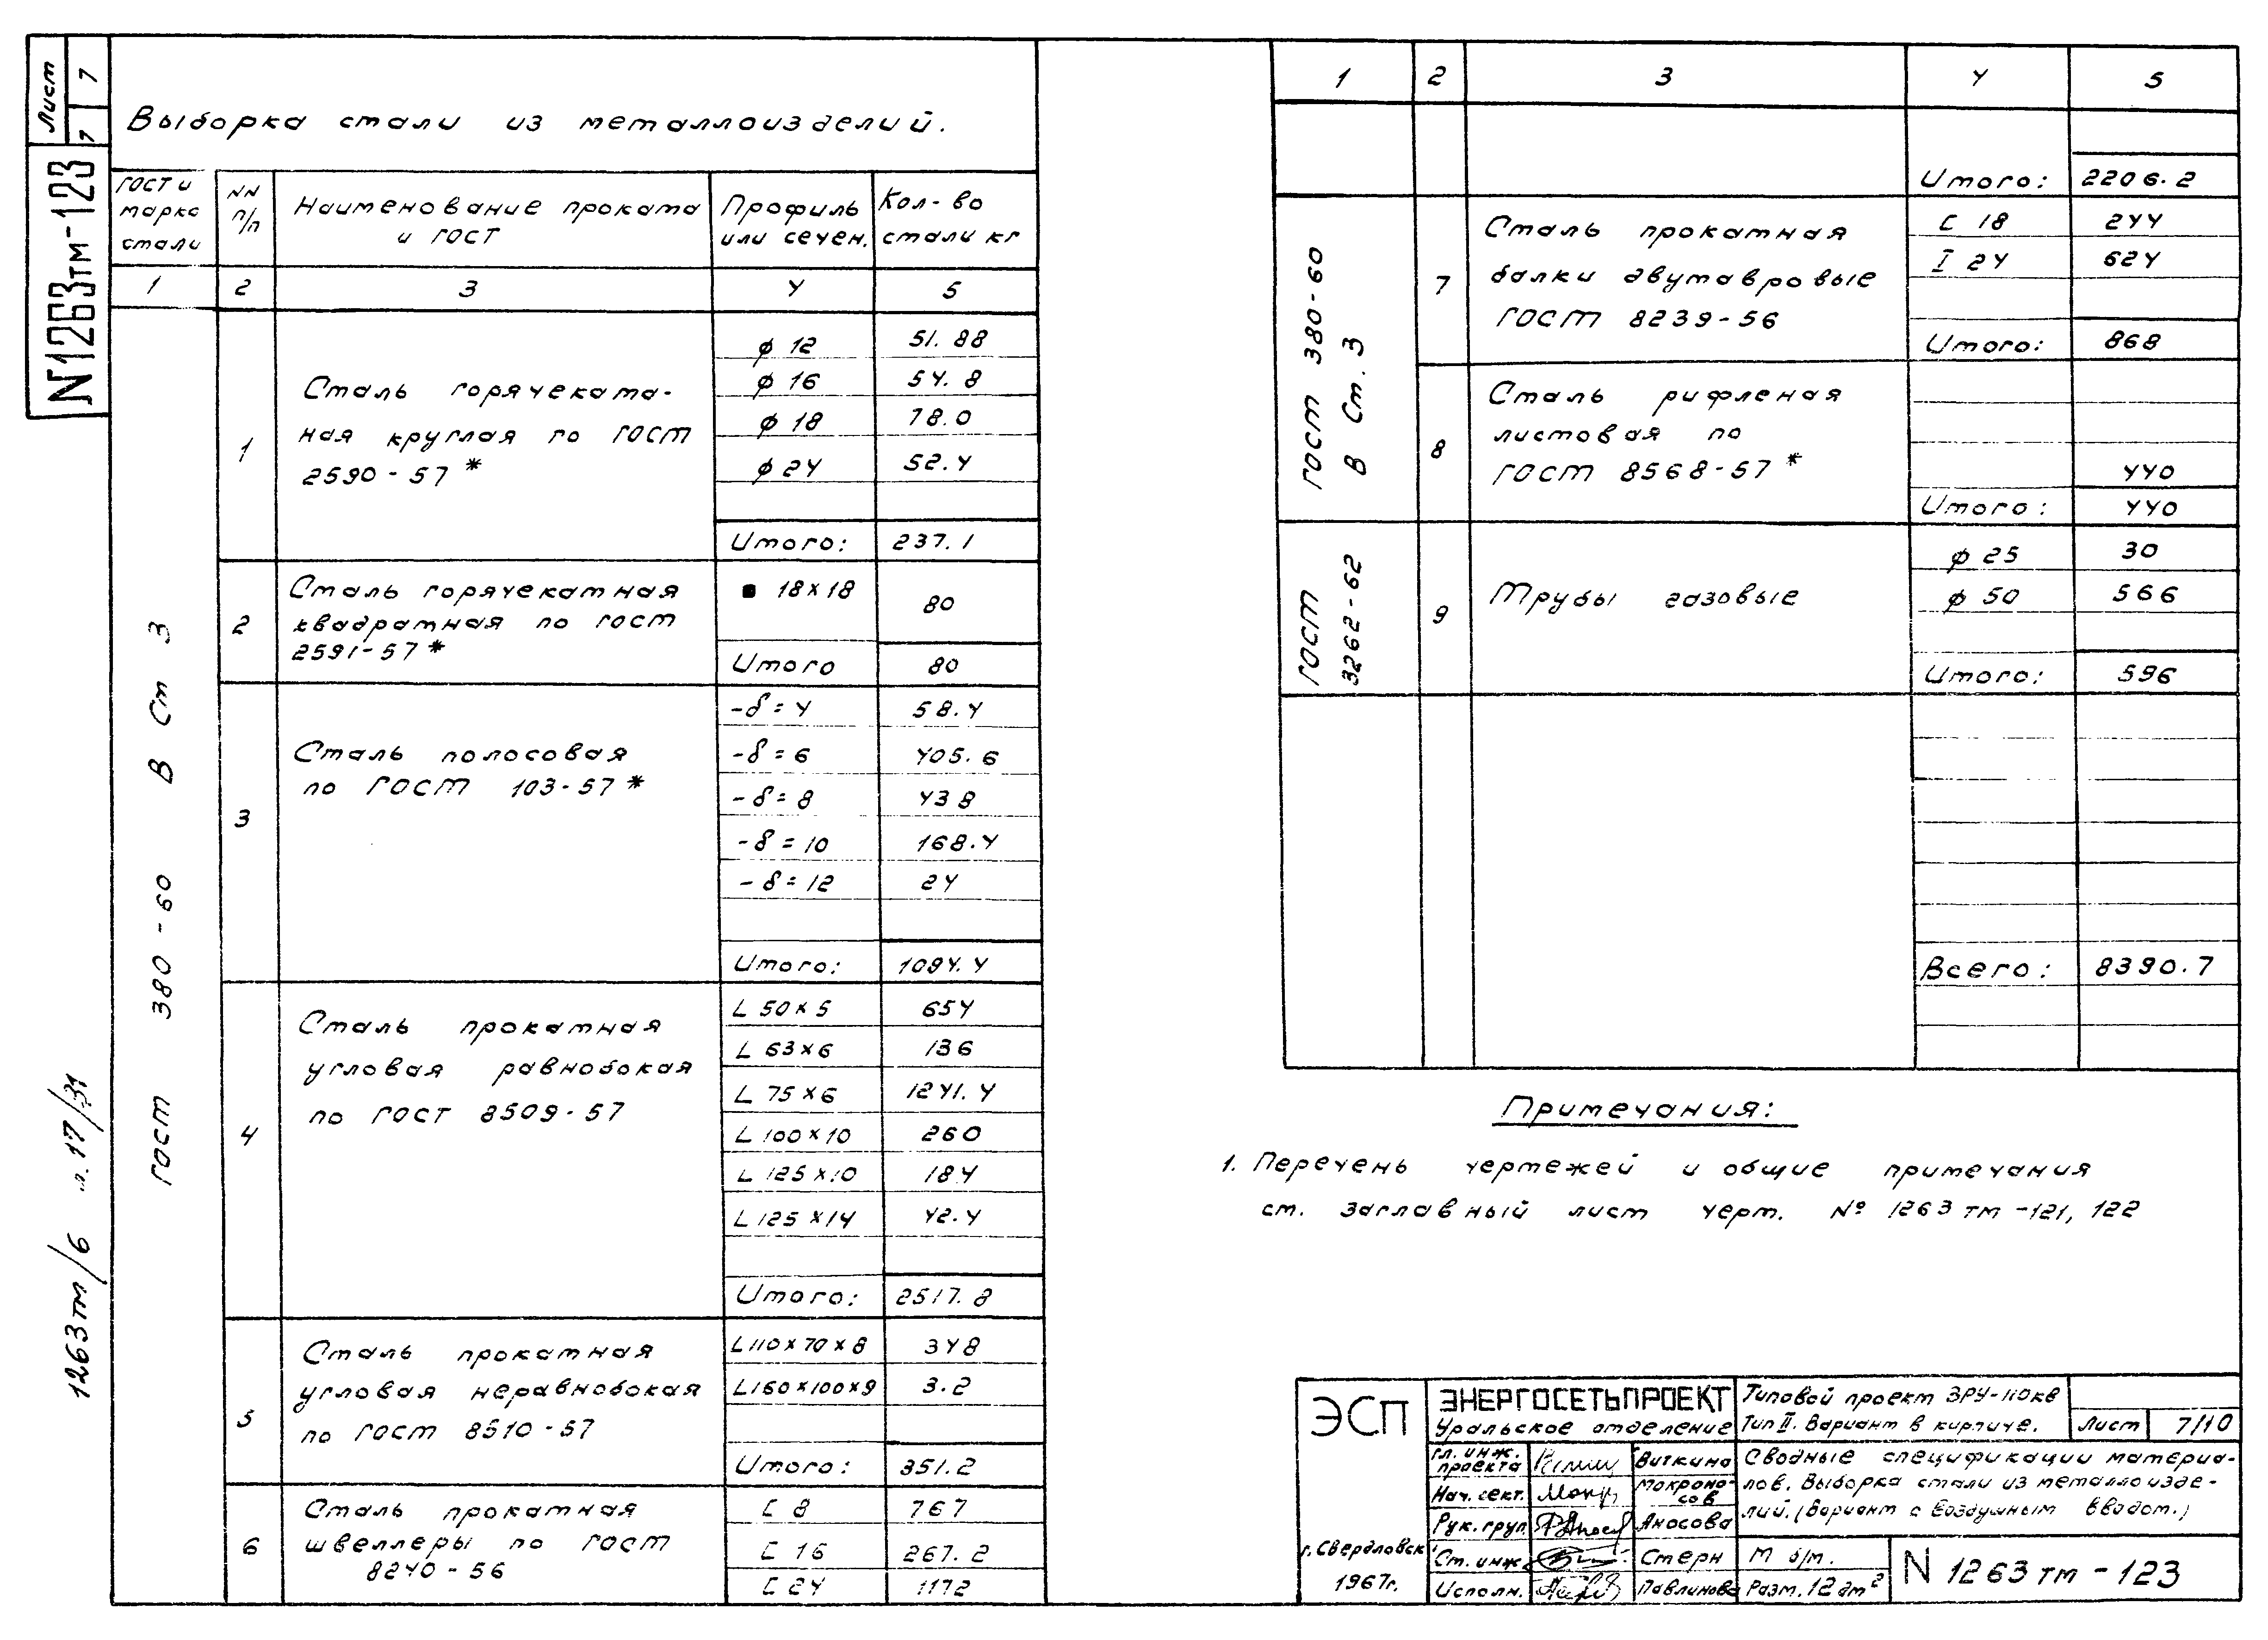 Лист 7 7
N1263тм-123
1263тм/6 л.17/31
Выборка стали из металлоизделий.
ГОСТ и марка стали | NN п/п | Наименование проката и ГОСТ | Профиль или сечен. | Кол-во стали кг
1 | 2 | 3 | 4 | 5
ГОСТ 380-60 В Ст 3
1 | Сталь горячеката-
ная круглая по ГОСТ
2590-57*
ф 12 | 51.88
ф 16 | 54.8
ф 18 | 78.0
ф 24 | 52.4
Итого: | 237.1
2 | Сталь горячекатная
квадратная по ГОСТ
2591-57*
■ 18x18 | 80
Итого | 80
3 | Сталь полосовая
по ГОСТ 103-57*
-δ=4 | 58.4
-δ=6 | 405.6
-δ=8 | 438
-δ=10 | 168.4
-δ=12 | 24
Итого: | 1094.4
4 | Сталь прокатная
угловая равнобокая
по ГОСТ 8509-57
L 50x5 | 654
L 63x6 | 136
L 75x6 | 1241.4
L 100x10 | 260
L 125x10 | 184
L 125x14 | 42.4
Итого: | 2517.8
5 | Сталь прокатная
угловая неравнобокая
по ГОСТ 8510-57
L110x70x8 | 348
L160x100x9 | 3.2
Итого: | 351.2
6 | Сталь прокатная
швеллеры по ГОСТ
8240-56
С 8 | 767
С 16 | 267.2
С 24 | 1172
1 | 2 | 3 | 4 | 5
Итого: | 2206.2
ГОСТ 380-60
В Ст. 3
7 | Сталь прокатная
балки двутавровые
ГОСТ 8239-56
С 18 | 244
I 24 | 624
Итого: | 868
8 | Сталь рифленая
листовая по
ГОСТ 8568-57*
440
Итого: | 440
ГОСТ
3262-62
9 | Трубы газовые
ф 25 | 30
ф 50 | 566
Итого: | 596
Всего: | 8390.7
Примечания:
1. Перечень чертежей и общие примечания
см. заглавный лист черт. № 1263тм-121, 122
ЭСП
г. Свердловск
1967г.
ЭНЕРГОСЕТЬПРОЕКТ
Уральское отделение
Типовой проект ЗРУ-110кв
Тип II. Вариант в кирпиче.
Лист 7/10
Гл. инж. проекта Виткина
Нач. сект. Мокроносов
Рук. груп. Аносова
Ст. инж. Стерн
Исполн. Павлинова
Сводные спецификации материа-
лов. Выборка стали из металлоизде-
лий. (Вариант с воздушным вводом.)
М б/м.
Разм. 12 дм²
N 1263тм-123